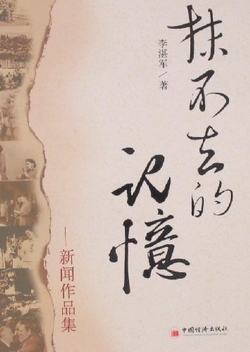 抹不去的
记憶
李湛军/著
——新闻作品集
中国经济出版社